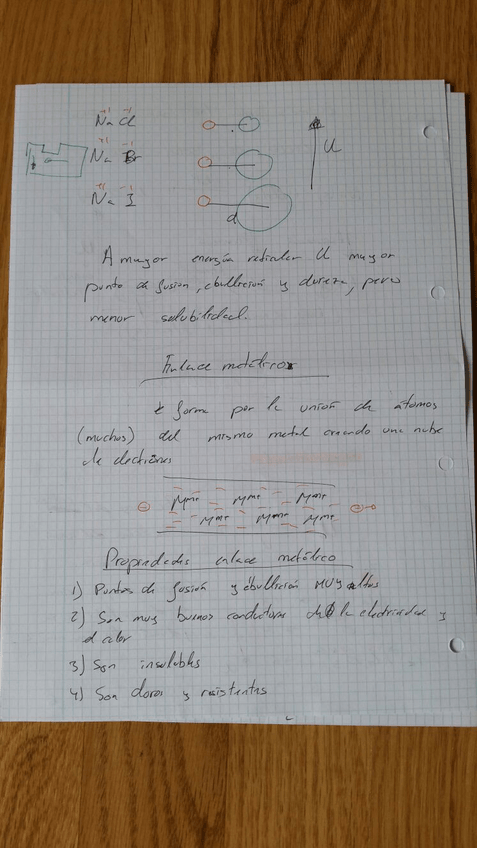 +1 -1
Na Cl
+1 -1
Na Br
U
+1 -1
Na I
d
A mayor energía reticular U mayor
punto de fusión, ebullición y dureza, pero
menor solubilidad.
Enlace metálico
se forma por la unión de átomos
(muchos) del mismo metal creando una nube
de electrones
M^m+ M^m+ M^m+
M^m+ M^m+ M^m+
Propiedades enlace metálico
1) Puntos de fusión y ebullición MUY altos
2) Son muy buenos conductores de la electricidad y
el calor
3) Son insolubles
4) Son duros y resistentes